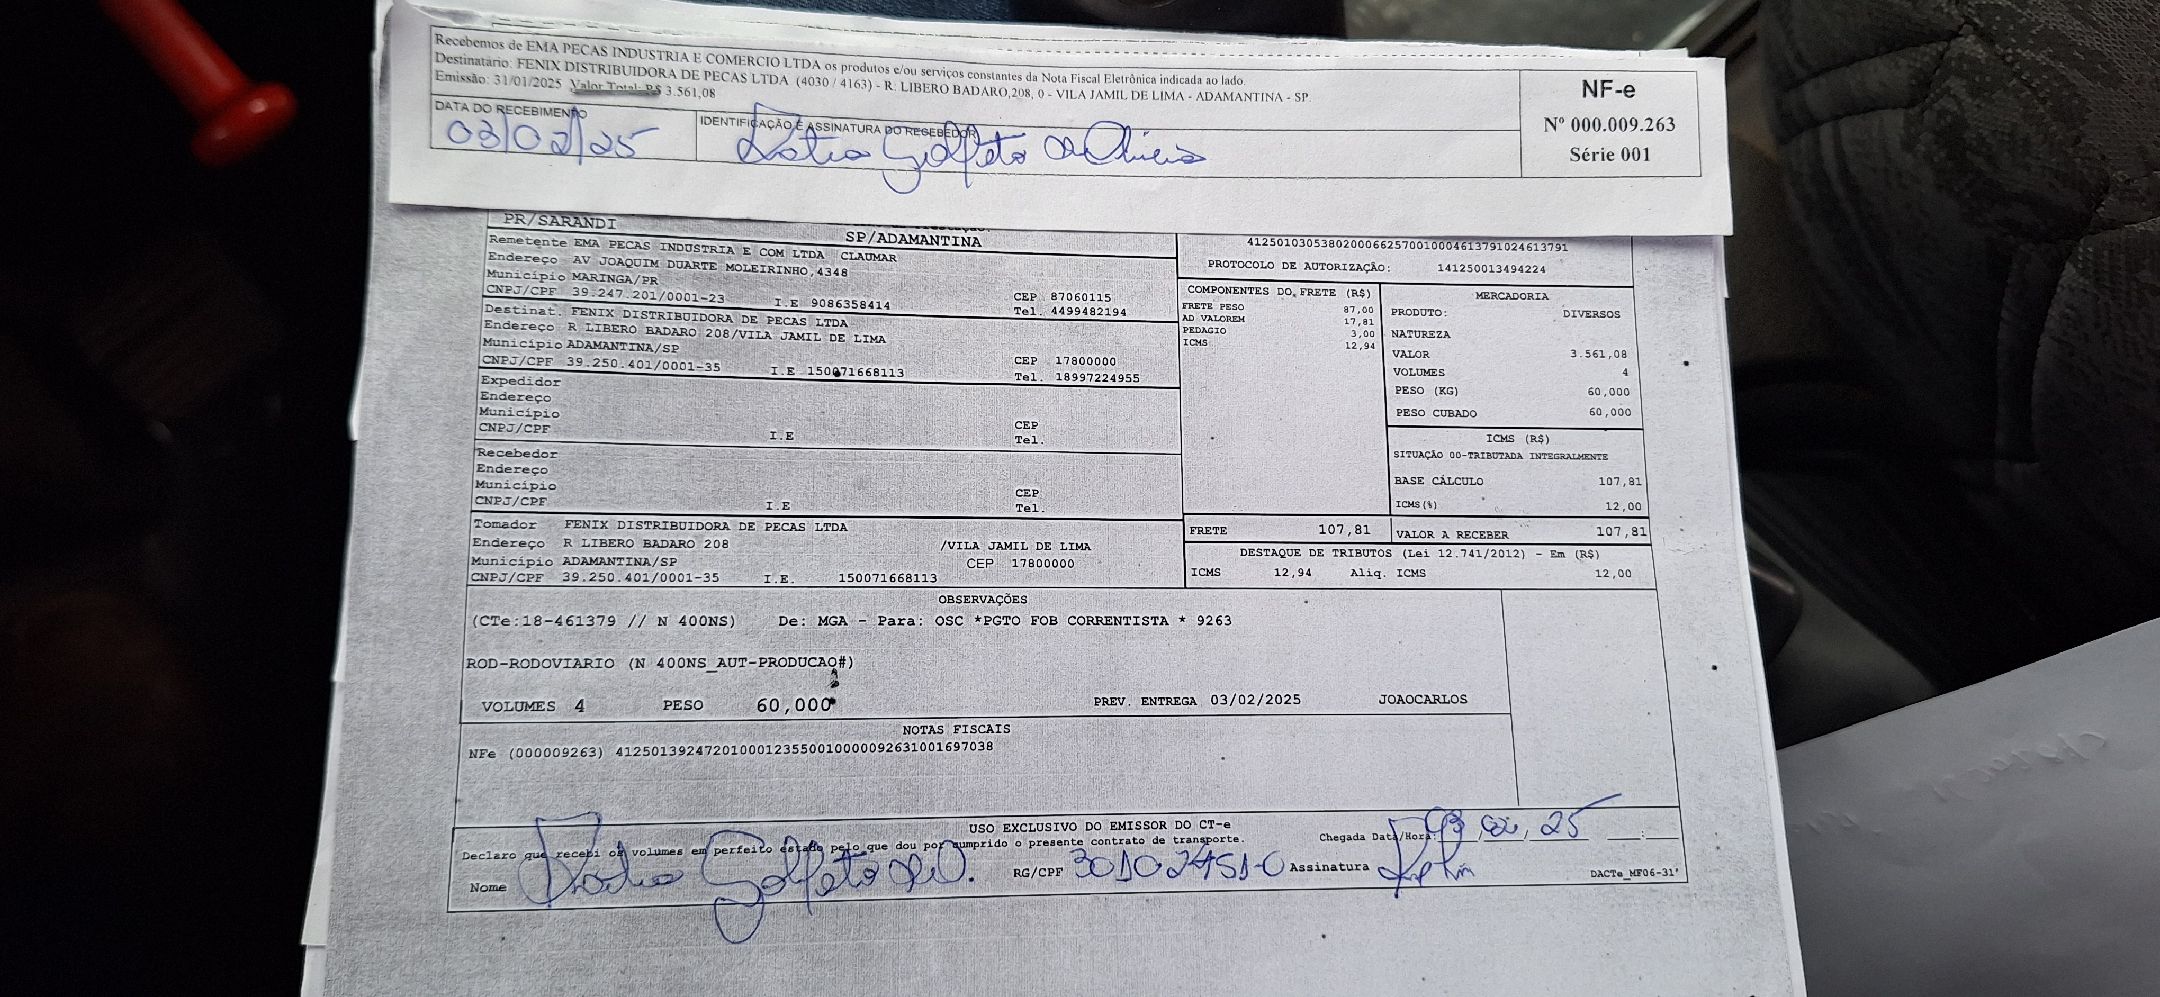 Recebemos de EMA PECAS INDUSTRIA E COMERCIO LTDA os produtos e/ou serviços constantes da Nota Fiscal Eletrônica indicada ao lado.
Destinatário: FENIX DISTRIBUIDORA DE PECAS LTDA (4030 / 4163) - R. LIBERO BADARO,208, 0 - VILA JAMIL DE LIMA - ADAMANTINA - SP.
Emissão: 31/01/2025 Valor Total: R$ 3.561,08
DATA DO RECEBIMENTO
03/02/25
IDENTIFICAÇÃO E ASSINATURA DO RECEBEDOR
NF-e
Nº 000.009.263
Série 001
PR/SARANDI
SP/ADAMANTINA
Remetente EMA PECAS INDUSTRIA E COM LTDA CLAUMAR
Endereço AV JOAQUIM DUARTE MOLEIRINHO,4348
Município MARINGA/PR
CNPJ/CPF 39.247.201/0001-23 I.E 9086358414
CEP 87060115
Tel. 4499482194
Destinat. FENIX DISTRIBUIDORA DE PECAS LTDA
Endereço R LIBERO BADARO 208/VILA JAMIL DE LIMA
Município ADAMANTINA/SP
CNPJ/CPF 39.250.401/0001-35 I.E 150071668113
CEP 17800000
Tel. 18997224955
Expedidor
Endereço
Município
CNPJ/CPF I.E
CEP
Tel.
Recebedor
Endereço
Município
CNPJ/CPF I.E
CEP
Tel.
Tomador FENIX DISTRIBUIDORA DE PECAS LTDA
Endereço R LIBERO BADARO 208 /VILA JAMIL DE LIMA
Município ADAMANTINA/SP CEP 17800000
CNPJ/CPF 39.250.401/0001-35 I.E. 150071668113
41250103053802000662570010004613791024613791
PROTOCOLO DE AUTORIZAÇÃO: 141250013494224
COMPONENTES DO FRETE (R$)
FRETE PESO 87,00
AD VALOREM 17,81
PEDAGIO 3,00
ICMS 12,94
MERCADORIA
PRODUTO: DIVERSOS
NATUREZA
VALOR 3.561,08
VOLUMES 4
PESO (KG) 60,000
PESO CUBADO 60,000
ICMS (R$)
SITUAÇÃO 00-TRIBUTADA INTEGRALMENTE
BASE CÁLCULO 107,81
ICMS(%) 12,00
FRETE 107,81 VALOR A RECEBER 107,81
DESTAQUE DE TRIBUTOS (Lei 12.741/2012) - Em (R$)
ICMS 12,94 Aliq. ICMS 12,00
OBSERVAÇÕES
(CTe:18-461379 // N 400NS) De: MGA - Para: OSC *PGTO FOB CORRENTISTA * 9263
ROD-RODOVIARIO (N 400NS_AUT-PRODUCAO#)
VOLUMES 4 PESO 60,000 PREV. ENTREGA 03/02/2025 JOAOCARLOS
NOTAS FISCAIS
NFe (000009263) 41250139247201000123550010000092631001697038
USO EXCLUSIVO DO EMISSOR DO CT-e
Declaro que recebi os volumes em perfeito estado pelo que dou por cumprido o presente contrato de transporte.
Chegada Data/Hora: 03, 02, 25
Nome
RG/CPF 30102451-0 Assinatura
DACTe_MF06-31'